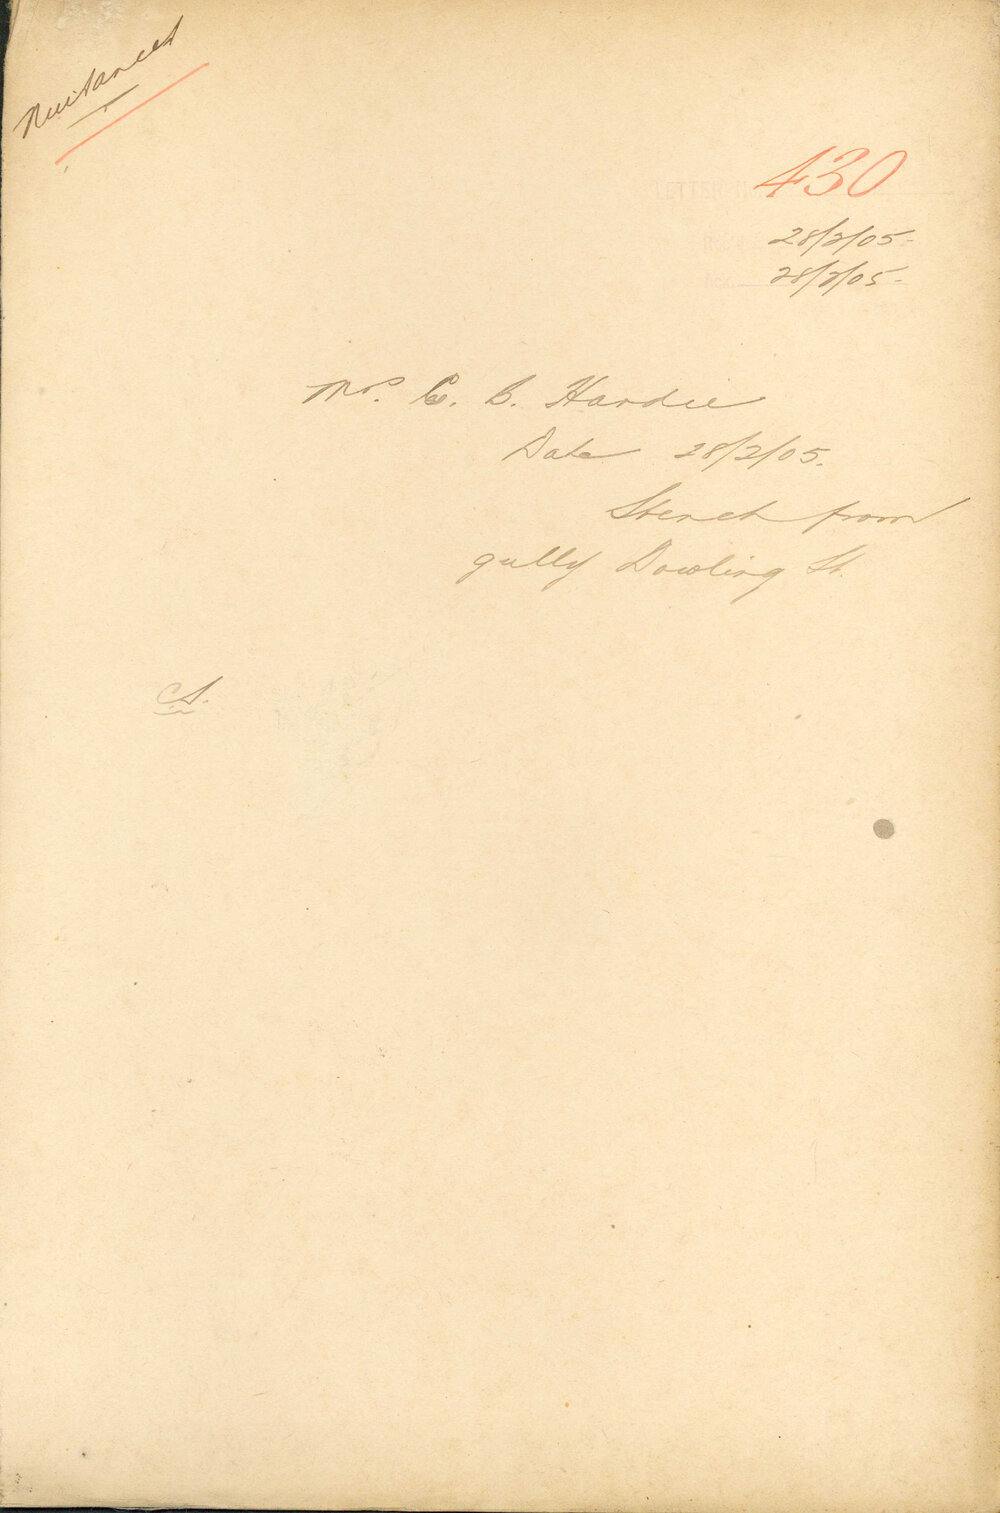 Nuisances
LETTER
430
28/2/05-
28/2/05-
Mrs. C. B. Hardie
Date 28/2/05.
Stench from
gully Dowling St.